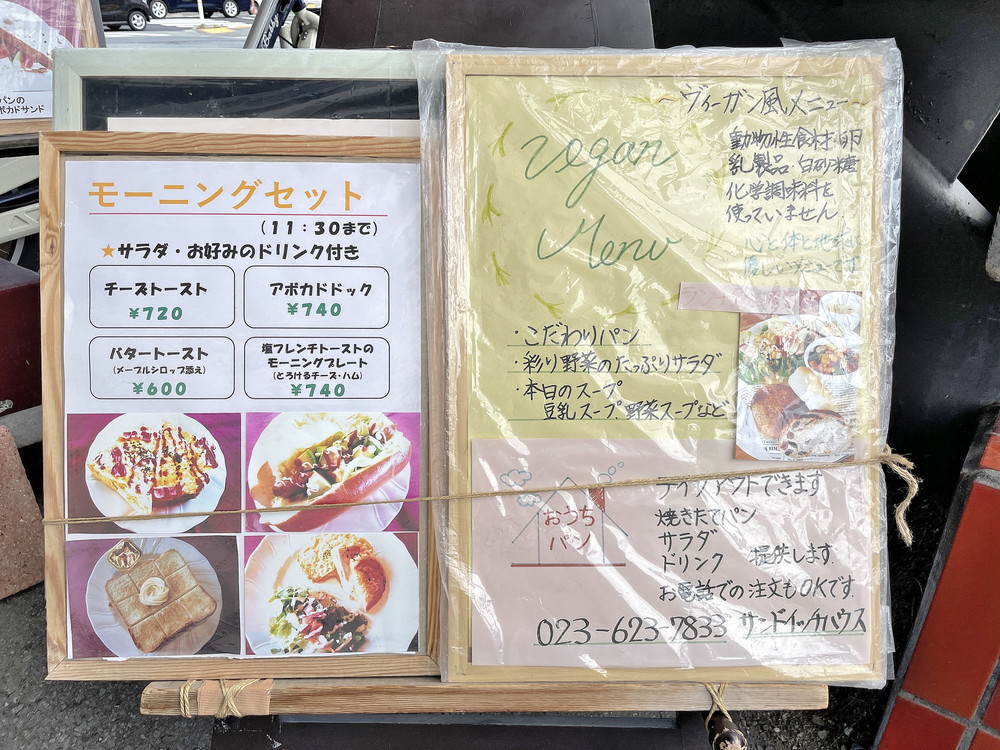 パンの
ボカドサンド
モーニングセット
(11:30まで)
★サラダ・お好みのドリンク付き
チーズトースト
¥720
アボカドドック
¥740
バタートースト
(メープルシロップ添え)
¥600
塩フレンチトーストの
モーニングプレート
(とろけるチーズ・ハム)
¥740
~ヴィーガン風メニュー~
vegan
Menu
動物性食材・卵
乳製品・白砂糖
化学調味料を
使っていません.
心と体と地球に
優しいメニューです
・こだわりパン
・彩り野菜のたっぷりサラダ
・本日のスープ
豆乳スープ 野菜スープなど
おうち
パン
テイクアウトできます
焼きたてパン
サラダ
ドリンク 提供します.
お電話での注文もOKです.
023-623-7833 サンドイッチハウス